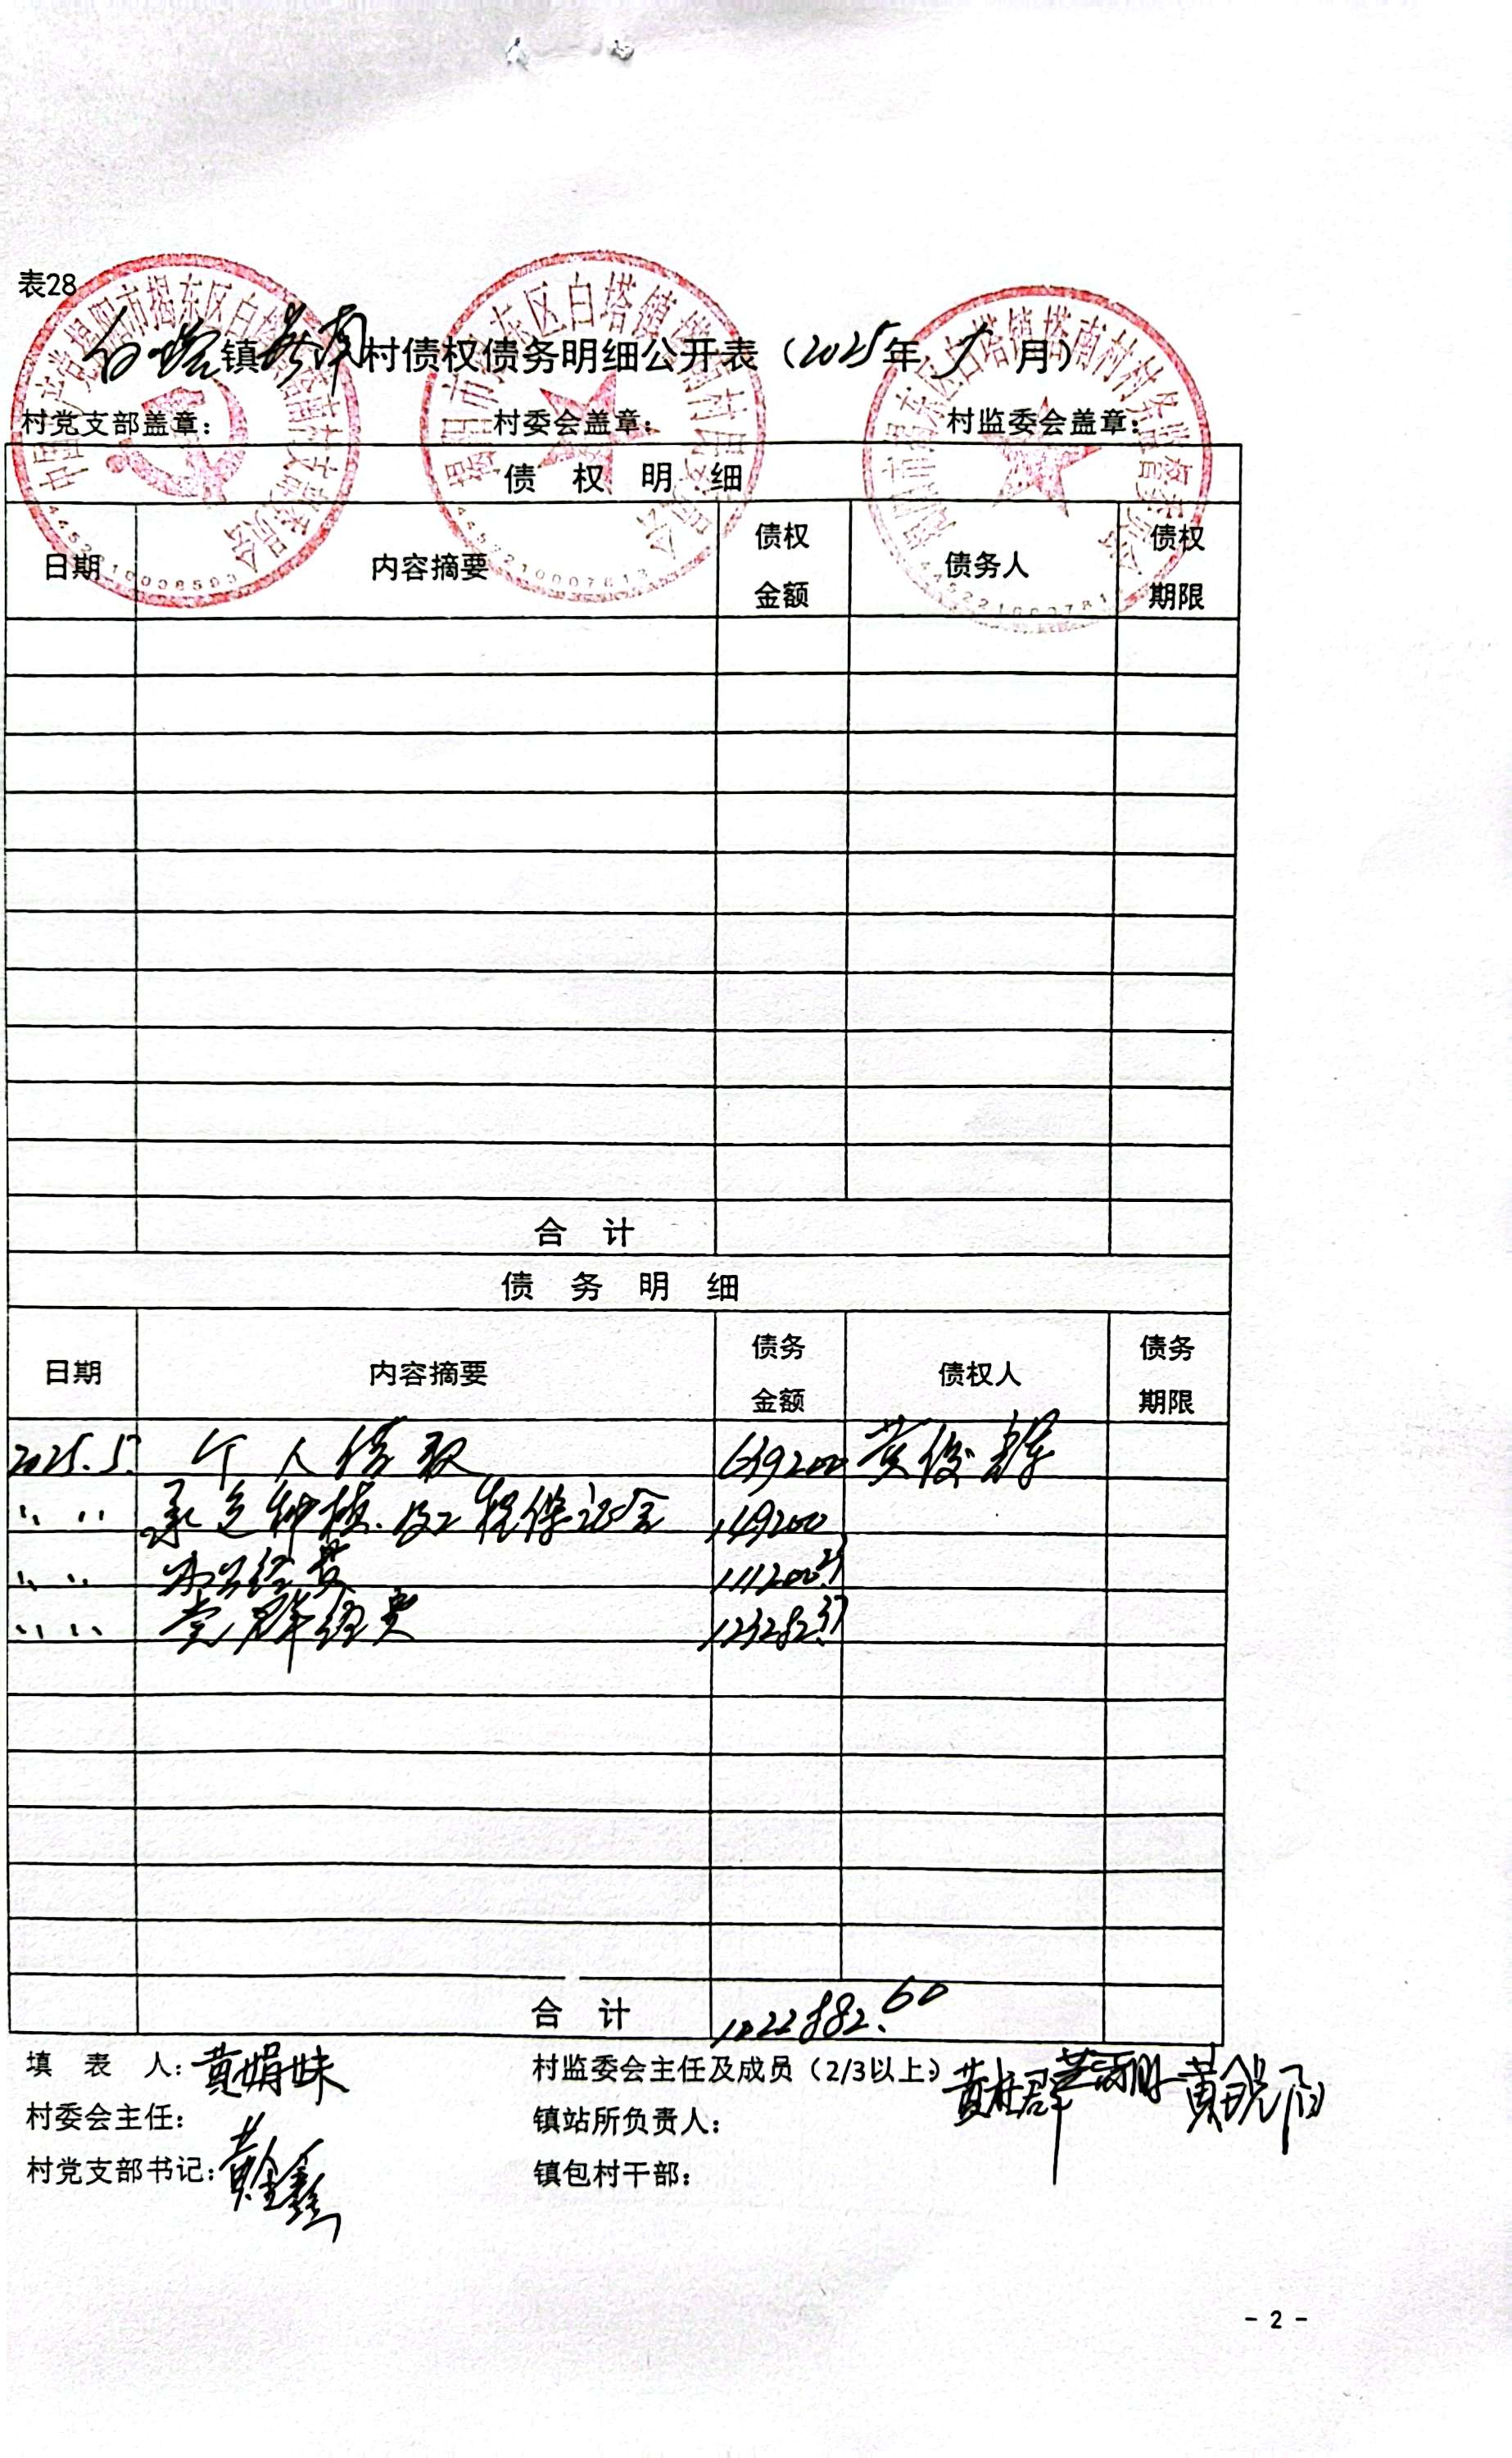 表28
白塔镇塔南村债权债务明细公开表（2025年5月）
村党支部盖章： 村委会盖章： 村监委会盖章：
中国共产党揭阳市揭东区白塔镇塔南村支部委员会
揭阳市揭东区白塔镇塔南村村民委员会
4452210007613
揭阳市揭东区白塔镇塔南村村务监督委员会
债 权 明 细
日期 内容摘要 债权金额 债务人 债权期限
合 计
债 务 明 细
日期 内容摘要 债务金额 债权人 债务期限
2025.5. 个人借款 639200 黄俊群
〃 〃 承包种植.及工程保证金 149200
〃 〃 办公经费 111200.23
〃 〃 党群经费 123282.37
合 计 1022882.60
填 表 人：黄娟妹 村监委会主任及成员（2/3以上）黄桂群
村委会主任： 镇站所负责人：
村党支部书记：黄金鑫 镇包村干部：
- 2 -